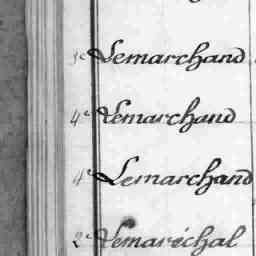 3e Lemarchand
4e Lemarchand
4e Lemarchand
2e Lemaréchal